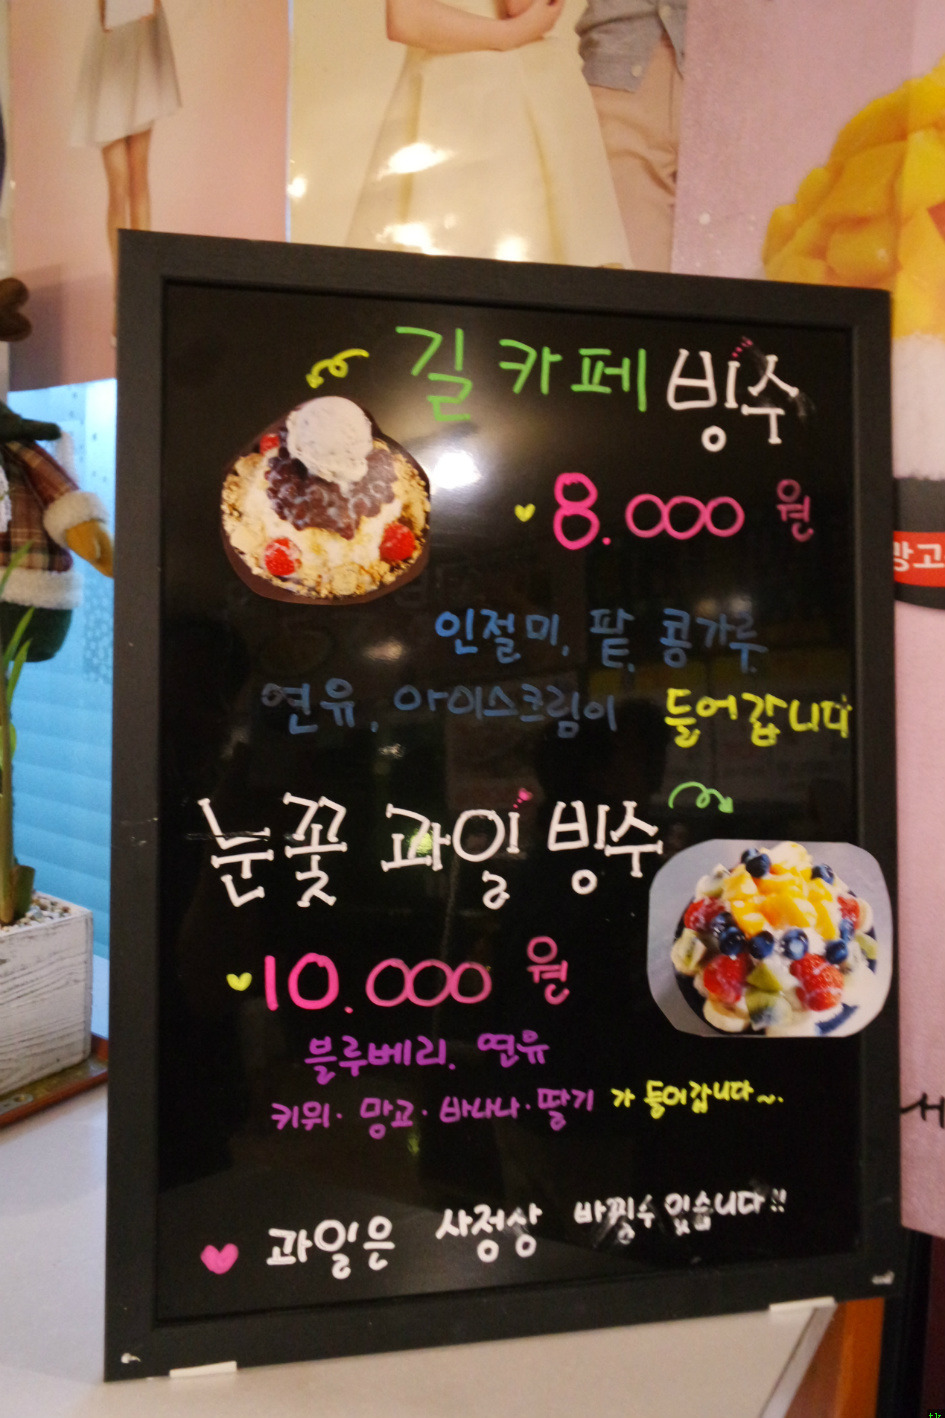 길카페 빙수
8.000 원
인절미, 팥, 콩가루
연유, 아이스크림이 들어갑니다
눈꽃 과일 빙수
10.000 원
블루베리. 연유
키위· 망고· 바나나·딸기 가 들어갑니다~.
과일은 사정상 바뀔수 있습니다!!
망고
세